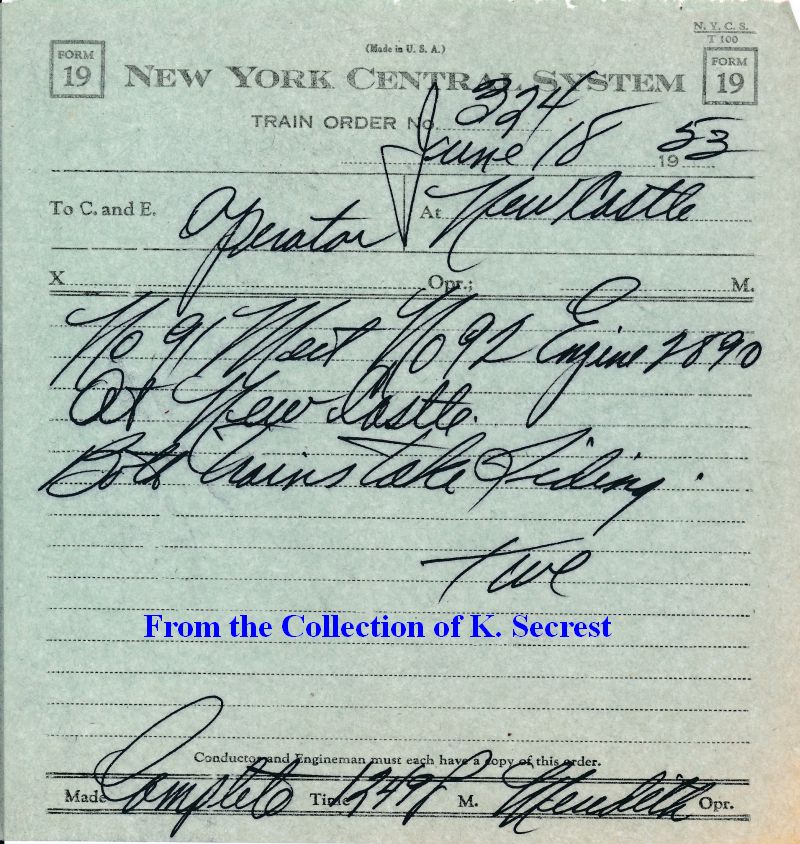 N. Y. C. S.
T 100
(Made in U. S. A.)
FORM 19
NEW YORK CENTRAL SYSTEM
FORM 19
TRAIN ORDER No. 324
June 18 1953
To C. and E. Operator At New Castle
X Opr.; M.
No 91 Meet No 92 Engine 2890
At New Castle.
Both trains take Siding.
From the Collection of K. Secrest
Conductor and Engineman must each have a copy of this order.
Made Complete Time 1249 P M. Meredith Opr.